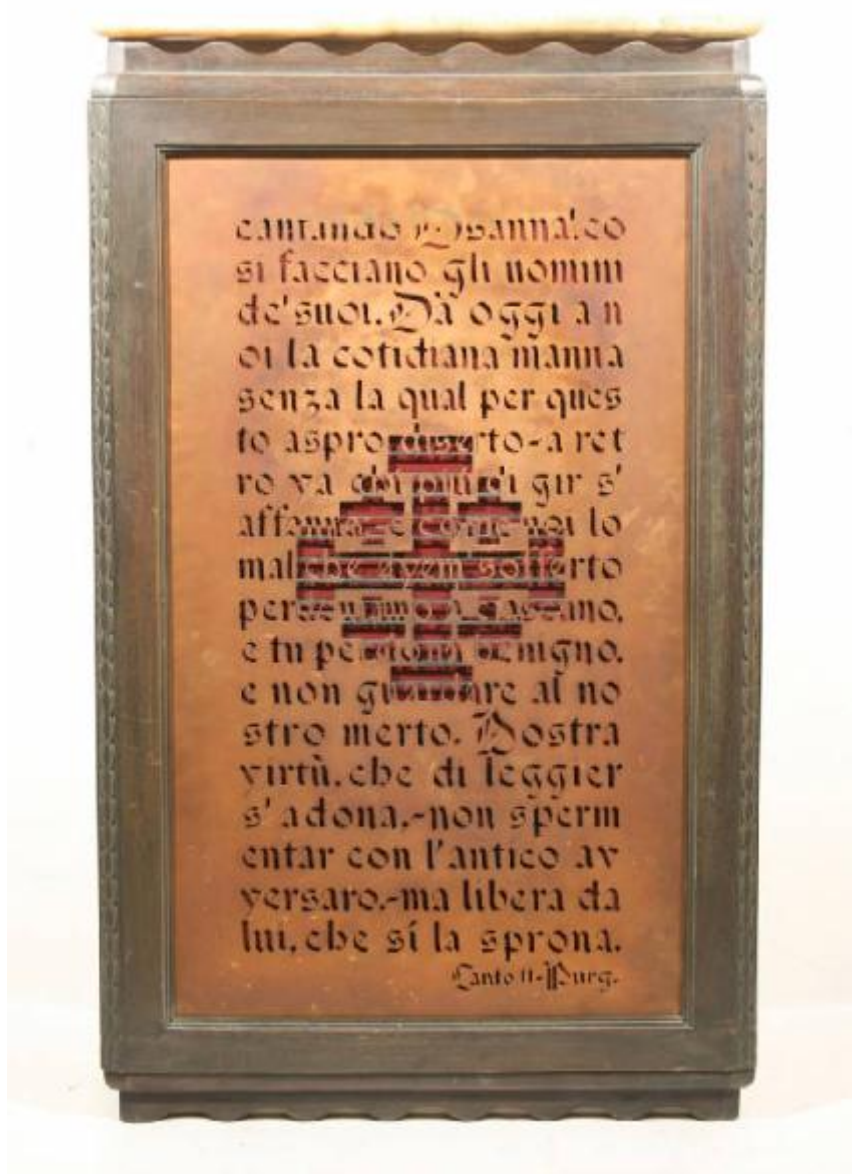 cantando Osanna'.co
si facciano gli uomini
de'suoi. Da oggi a n
oi la cotidiana manna
senza la qual per ques
to aspro diserto-a ret
ro va chi più di gir s'
affanna e come noi lo
mal che avem sofferto
perdoniamo a ciascuno.
e tu perdona benigno.
e non guardare al no
stro merto. Nostra
virtù. che di leggier
s'adona.-non sperm
entar con l'antico av
versaro.-ma libera da
lui. che sí la sprona.
Canto 11-Purg.